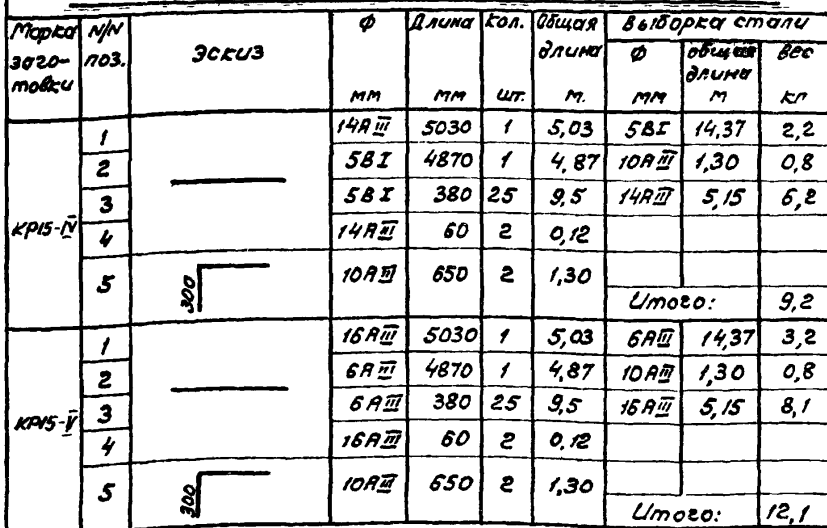 Марка заготовки N/N поз. Эскиз ф мм Длина мм Кол. шт. Общая длина м. Выборка стали
ф мм общая длина м вес кг
КР15-IV
1 14АIII 5030 1 5,03 5ВI 14,37 2,2
2 5ВI 4870 1 4,87 10АIII 1,30 0,8
3 5ВI 380 25 9,5 14АIII 5,15 6,2
4 14АIII 60 2 0,12
5 300 10АIII 650 2 1,30
Итого: 9,2
КР15-V
1 16АIII 5030 1 5,03 6АIII 14,37 3,2
2 6АIII 4870 1 4,87 10АIII 1,30 0,8
3 6АIII 380 25 9,5 16АIII 5,15 8,1
4 16АIII 60 2 0,12
5 300 10АIII 650 2 1,30
Итого: 12,1